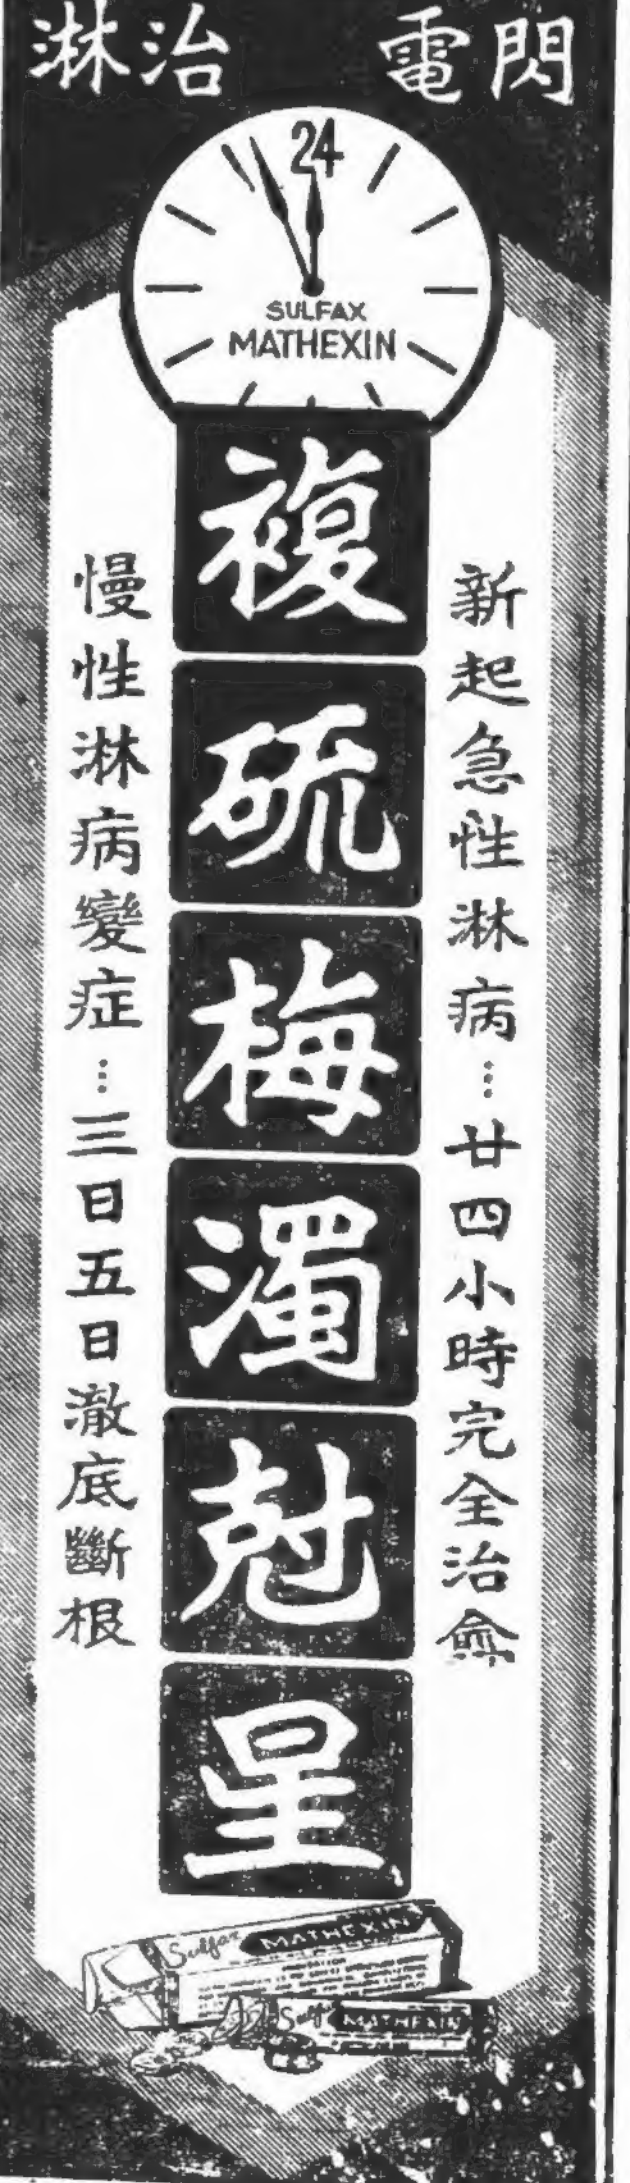 閃電　治淋
24
SULFAX
MATHEXIN
複硫梅濁尅星
新起急性淋病…廿四小時完全治愈
慢性淋病變症…三日五日澈底斷根
Sulfax MATHEXIN
Sulfax MATHEXIN